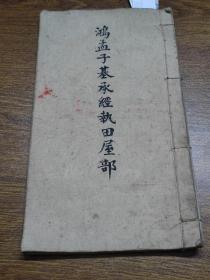 鴻孟子基承經執田屋部